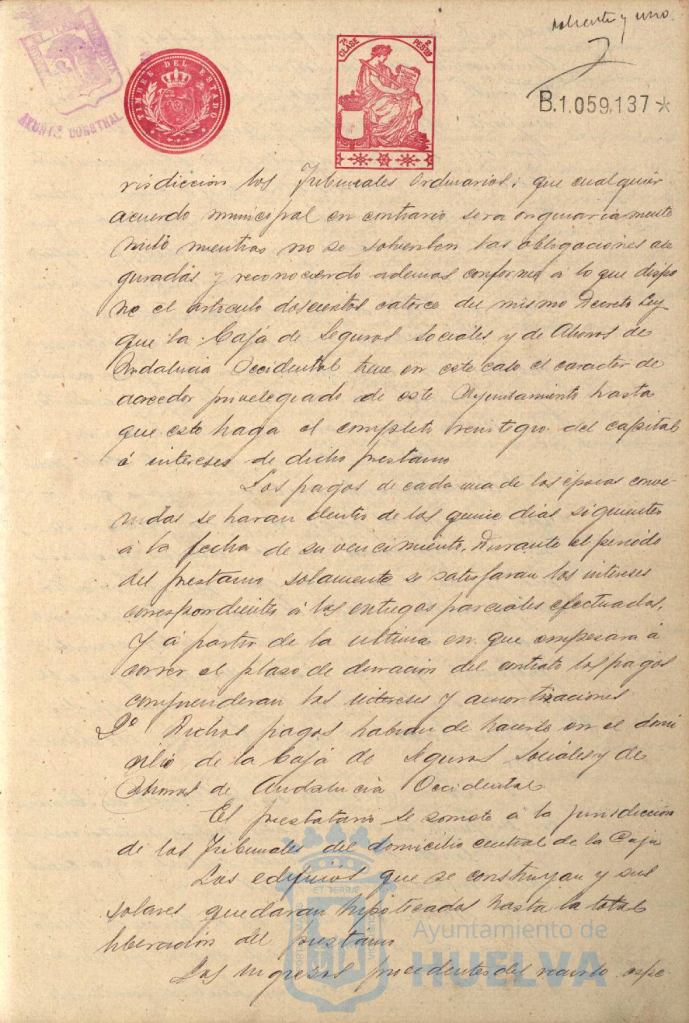 ochenta y uno
TIMBRE DEL ESTADO
7ª CLASE
2 PESETAS
AYUNTº CORRTHAL
B.1.059.137*
risdiccion los Tribunales Ordinarios; que cualquier
acuerdo municipal en contrario sera originariamente
nulo mientras no se solventen las obligaciones ase
guradas y reconociendo ademas conforme á lo que dispo
ne el articulo doscientos catorce del mismo Decreto Ley
que la Caja de Seguros Sociales y de Ahorros de
Andalucia Occidental tiene en este caso el caracter de
acreedor privelegiado de este Ayuntamiento hasta
que este haga el completo reintegro del capital
é intereses de dicho prestamo
Los pagos de cada una de las épocas conve-
nidas se haran dentro de los quince dias siguientes
á la fecha de su vencimiento. Durante el periodo
del prestamo solamente se satisfaran los intereses
correspondientes á las entregas parciales efectuadas,
Y á partir de la ultima en que empesara á
correr el plazo de duracion del contrato los pagos
comprenderan los intereses y amortizaciones
Dº Dichos pagos habran de hacerse en el domi
cilio de la Caja de Seguros Sociales y de
Ahorros de Andalucia Occidental
El prestatario se somete á la jurisdiccion
de los Tribunales del domicilio central de la Caja
Los edificios que se construyan y sus
solares quedaran hipotecados hasta la total
liberación del prestamo
Los ingresos procedentes del recinto espe-
Ayuntamiento de
HUELVA